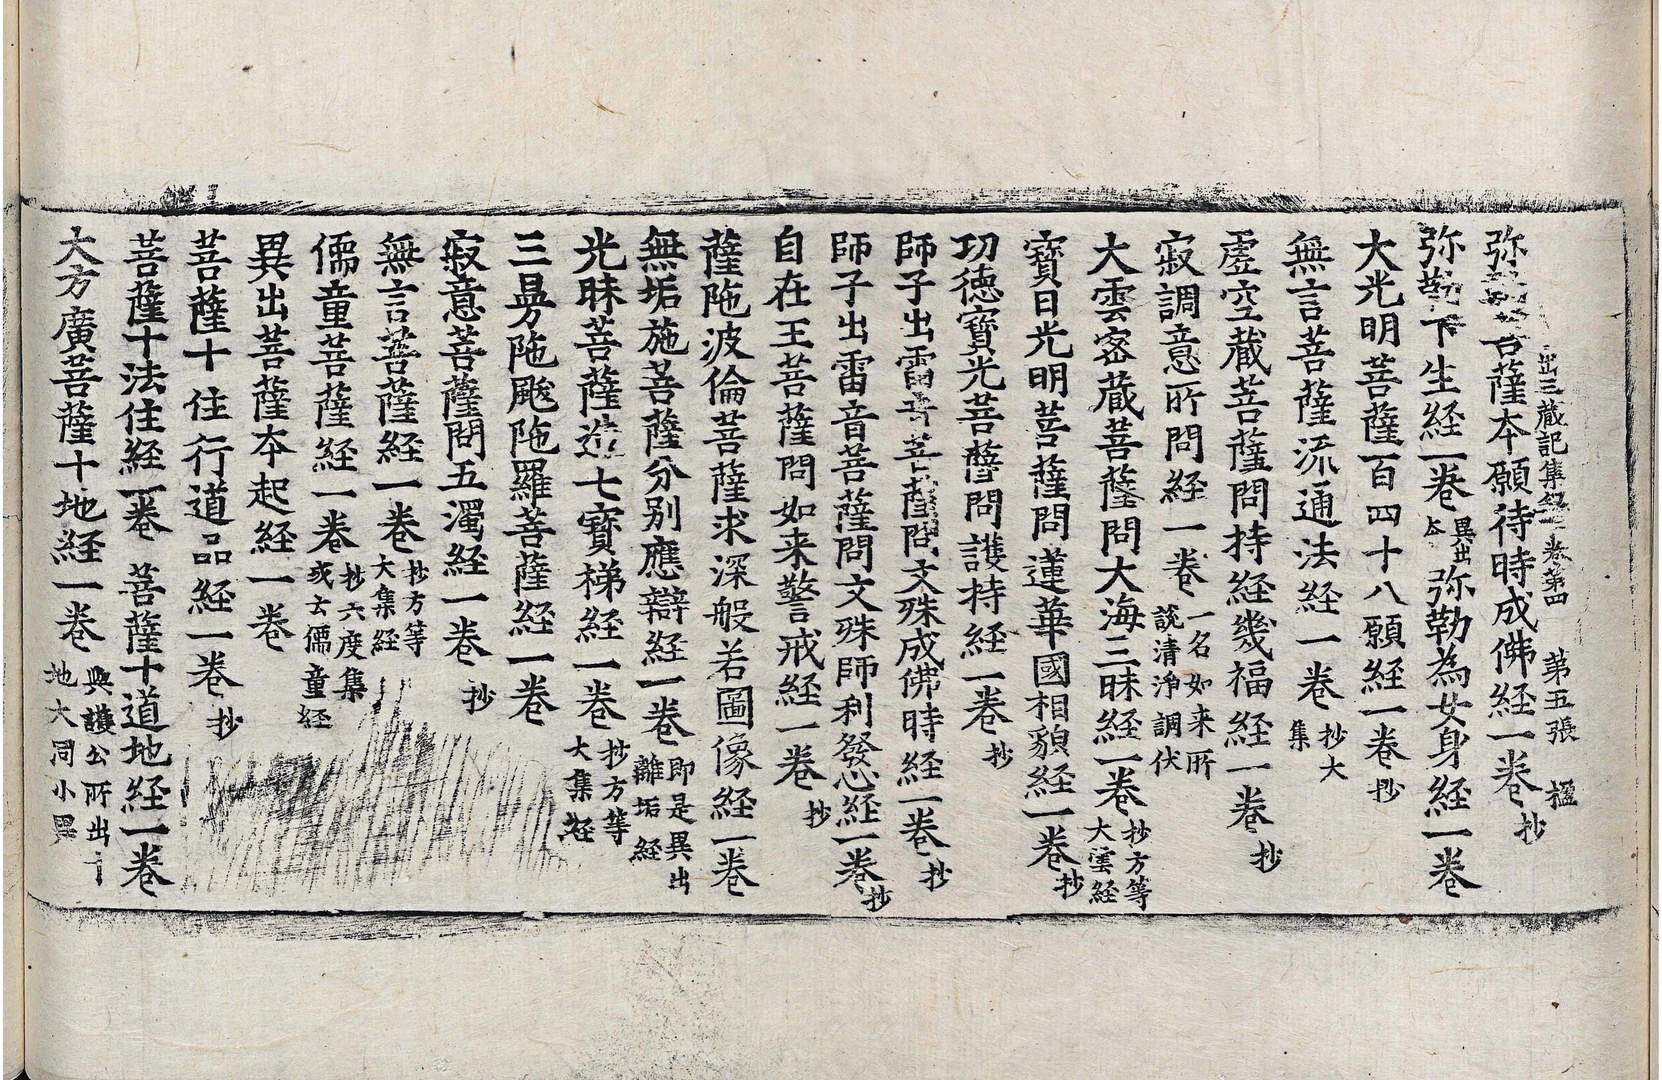 出三藏記集経卷第四　第五張　楹
弥菩薩本願待時成佛経一卷 抄
弥勒下生経一卷 異出本 弥勒為女身経一卷
大光明菩薩百四十八願経一卷 抄
無言菩薩流通法経一卷 抄大集
虛空藏菩薩問持経幾福経一卷 抄
寂調意所問経一卷 一名如来所說清淨調伏
大雲密藏菩薩問大海三昧経一卷 抄方等大雲経
寶日光明菩薩問蓮華國相貌経一卷 抄
功德寶光菩薩問護持経一卷 抄
師子出雷音菩薩問文殊成佛時経一卷 抄
師子出雷音菩薩問文殊師利發心経一卷 抄
自在王菩薩問如来警戒経一卷 抄
薩陁波倫菩薩求深般若圖像経一卷
無垢施菩薩分別應辯経一卷 即是異出離垢経
光昧菩薩造七寶梯経一卷 抄方等大集経
三曼陁颰陁羅菩薩経一卷
寂意菩薩問五濁経一卷 抄
無言菩薩経一卷 抄方等大集経
儒童菩薩経一卷 抄六度集或云儒童経
異出菩薩本起経一卷
菩薩十住行道品経一卷 抄
菩薩十法住経一卷　菩薩十道地経一卷
大方廣菩薩十地経一卷 與護公所出十地大同小異